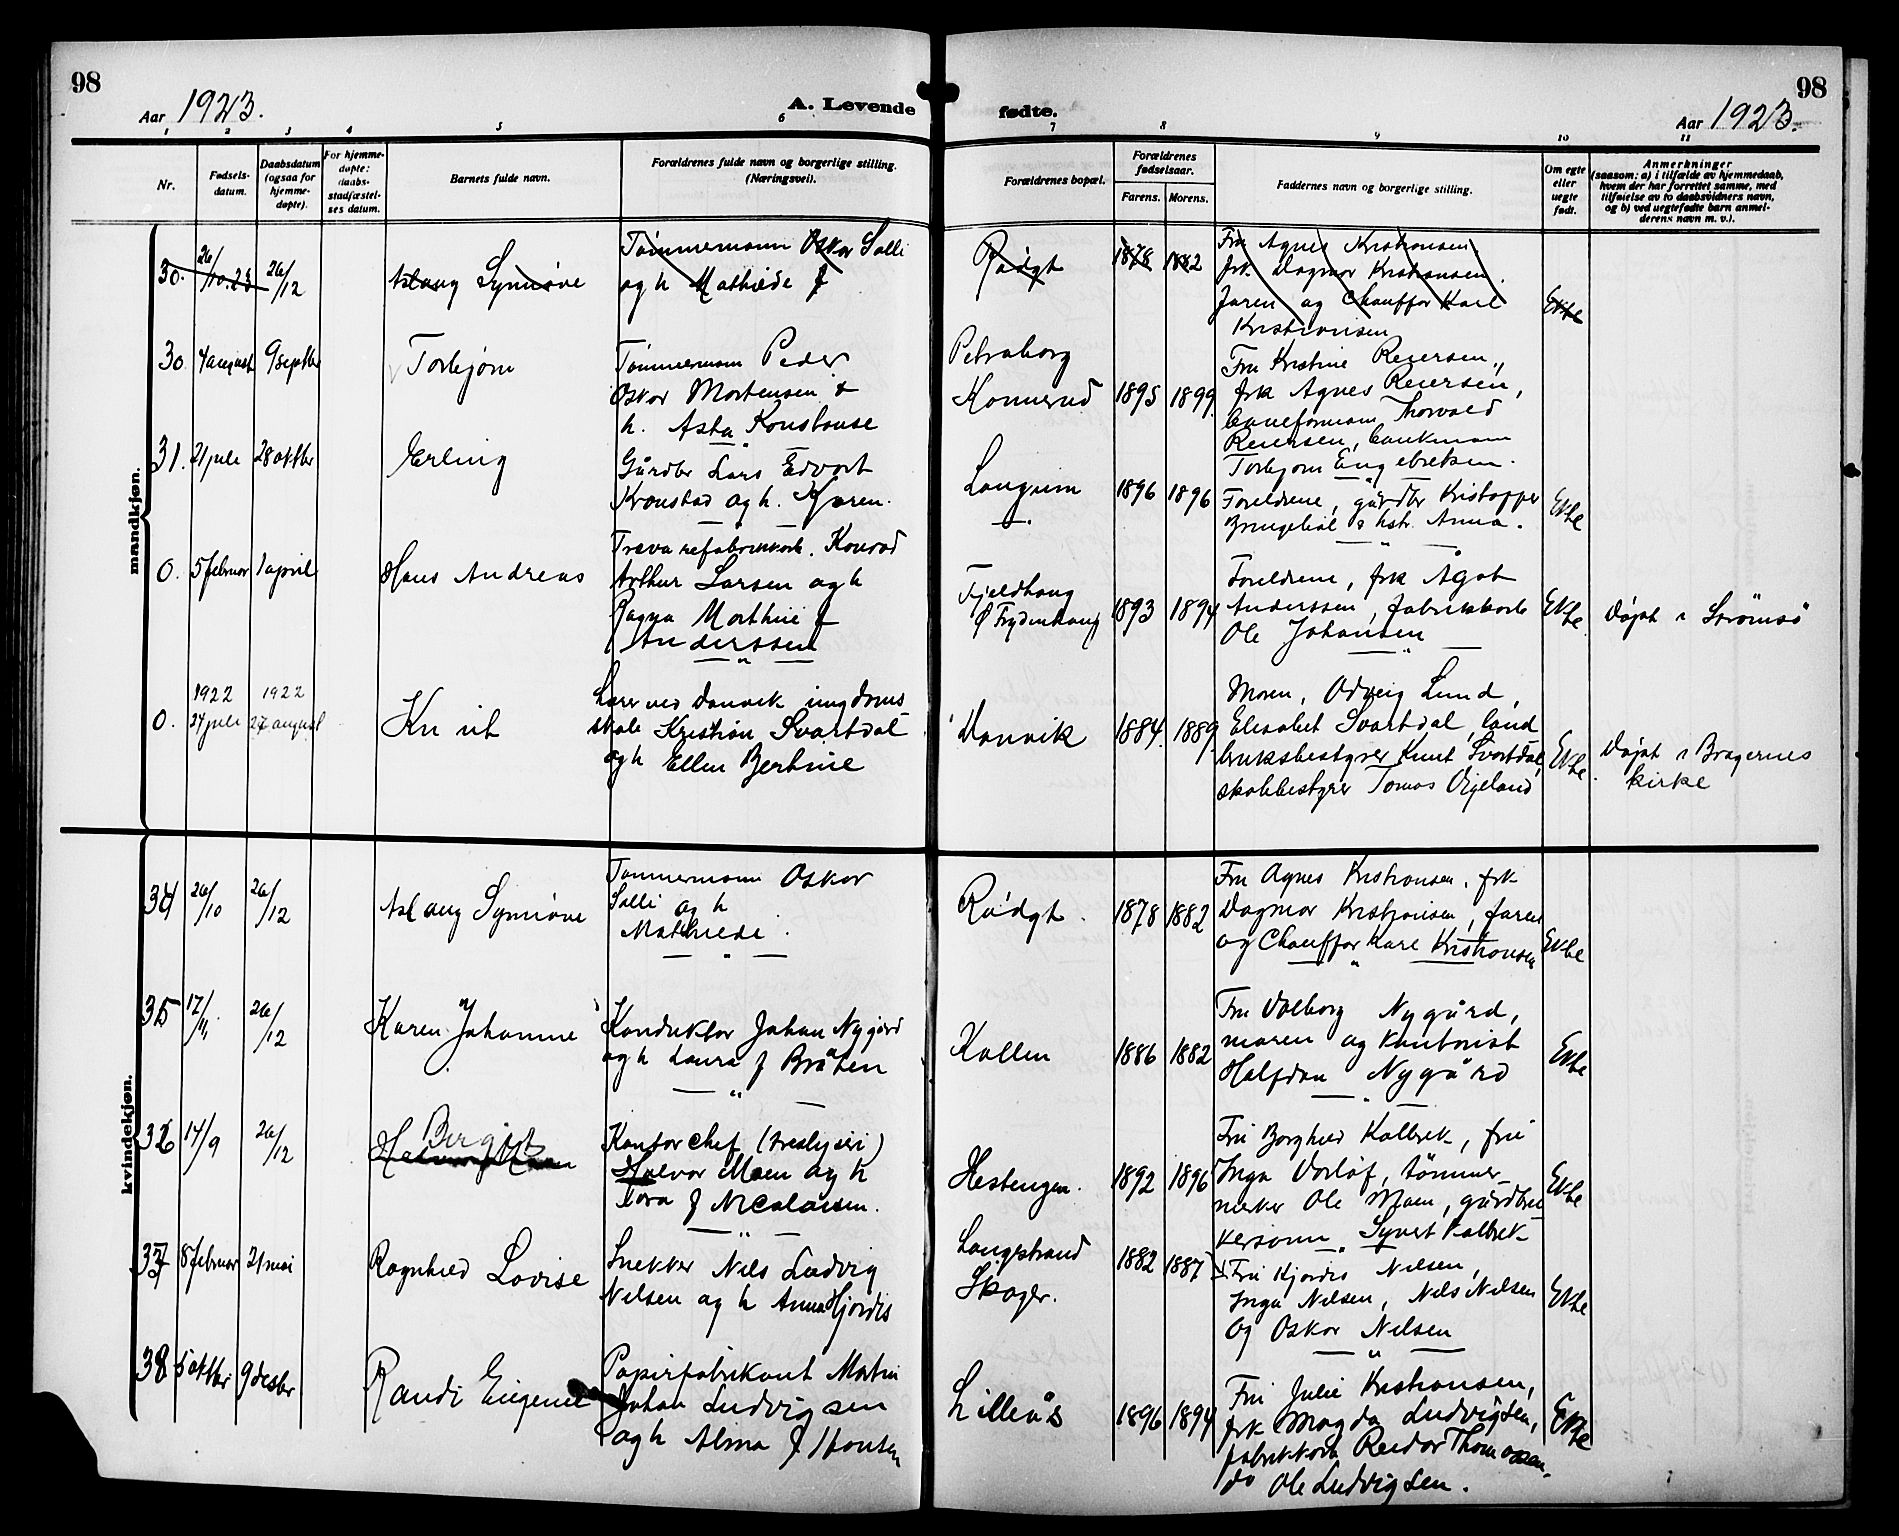 98
Aar 1923.
A. Levende fødte.
98
Aar 1923.
1 2 3 4 5 6 7 8 9 10 11
Nr.
Fødsels-
datum.
Daabsdatum
(ogsaa for
hjemme-
døpte).
For hjemme-
døpte:
daabs-
stadfæstel-
ses datum.
Barnets fulde navn.
Forældrenes fulde navn og borgerlige stilling.
(Næringsvei).
Forældrenes bopæl.
Forældrenes
fødselsaar.
Farens. Morens.
Faddernes navn og borgerlige stilling.
Om egte
eller
uegte
født.
Anmerkninger
(saasom: a) i tilfælde av hjemmedaab,
hvem der har forrettet samme, med
tilføielse av to daabsvidners navn,
og b) ved uegtefødte barn anmel-
derens navn m. v.).
mandkjøn.
30. 26/10.23 26/12 Aslaug Synnøve
Tømmermann Oskar Solli
og h Mathilde f
Rødgt 1878 1882
Fru Agnes Kristiansen
frk. Dagmar Kristiansen.
Faren og Chauffør Karl
Kristiansen
Ekte
30. 4 august 9 septbr Torbjørn
Tømmermann Peder
Oskar Mortensen &
h. Asta Konstanse
Petraborg
Konnerud 1895 1899.
Fru Kristine Reiersen,
frk Agnes Reiersen,
baneformann Thorvald
Reiersen, bankmann
Torbjørn Engebretsen.
31. 21 juli 28 oktbr Erling
Gårdbr Lars Edvart
Kronstad og h. Karen.
Langum 1896 1896
Foreldrene, gårdbr Kristoffer
hstr. Anna.
Ekte
0. 5 februar 1 april Hans Andreas
Konrad
Arthur Larsen og h
Ragna Marthine f
Anderssen
Fjeldhaug
Frydenhaug 1893 1894
Foreldrene, frk Ågot
Anderssen, fabrikkarb
Ole Johansen
Ekte
Døpt i Strømsø
0. 1922 24 juli 1922 27 august Knut
Lærer ved Danvik ungdoms-
skole Kristian Svartdal
og h Ellen Bertine
Danvik 1884. 1889
Moren, Odveig Lund,
Elisabet Svartdal, land
bruksbestyrer Knut Svartdal,
skolebestyrer Tomas Vigeland
Ekte
Døpt i Bragernes
kirke
kvindekjøn.
34 26/10 26/12 Aslaug Synnøve
Tømmermann Oskar
Solli og h
Mathilde.
Rødgt. 1878 1882
Fru Agnes Kristiansen, frk
Dagmar Kristiansen, faren
og Chauffør Karl Kristiansen
Ekte
35 17/11. 26/12 Karen Johanne
Konduktør Johan Nygård
og h Laura f Bråten
Kollen 1886 1882
Fru Valborg Nygård,
moren og kontorist
Halfdan Nygård
Ekte
36 14/9 26/12 Bergljot
Kontorchef
Halvor Moen og h
Tora f Nicolaisen.
Hestengen. 1892 1896
Fru Borghild Kolbrek, fru
Inga tømmer-
merker Ole Moen, gårdbru
kersønn Syvert Kolbrek
Ekte
37 8 februar 21 mai Ragnhild Lovise
Snekker Nils Ludvig
Nilsen og h Anna Hjordis
Langestrand
Skoger. 1882 1887
Fru Hjordis Nilsen,
Inga Nilsen, Nils Nilsen
og Oskar Nilsen
Ekte
38 5 oktbr 9 desbr Randi Eugenie
Papirfabrikant Martin
Johan Ludvigsen
og h Alma f Hansen
Lilleås 1896 1894
Fru Julie Kristiansen,
frk Magda Ludvigsen,
fabrikkarb. Reidar Thomassen,
do Ole Ludvigsen.
Ekte